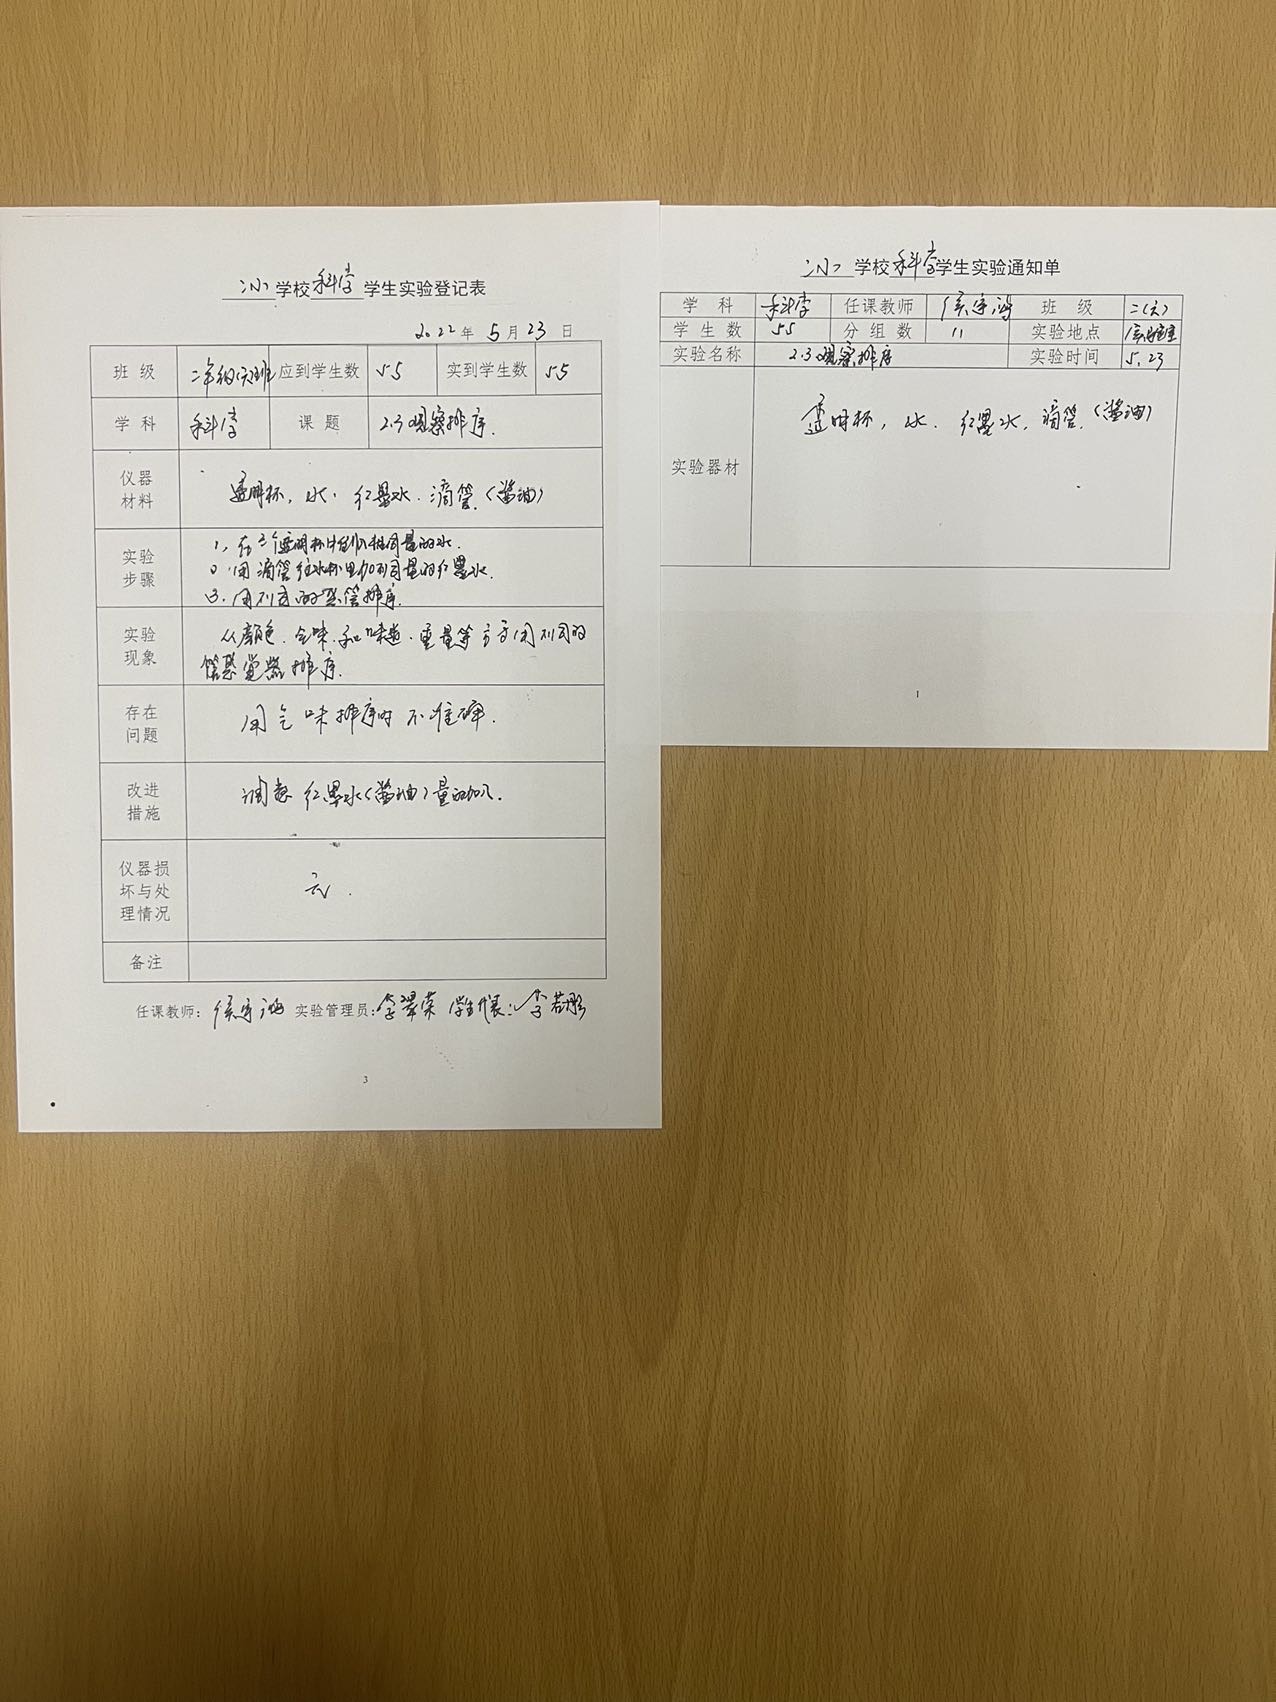 学校科学学生实验登记表
2022年5月23日
班级 应到学生数 55 实到学生数 55
学科 科学 课题 2.3观察排序.
仪器材料 透明杯, 水. 红墨水. 滴管(酱油)
实验步骤 1, 在三个透明杯中倒入相同量的水.
2.用滴管往水杯里加不同量的红墨水.
3.用不同的感官排序.
实验现象 从颜色. 气味 和味道. 重量等 用不同的
感觉器排序.
存在问题 用气味排序时不准确.
改进措施 调整红墨水(酱油)量的加入.
仪器损坏与处理情况 无.
备注
任课教师: 实验管理员:李翠荣 学生代表:李若彤
3
学校科学学生实验通知单
学科 科学 任课教师 班级
学生数 55 分组数 11 实验地点
实验名称 2.3观察排序 实验时间 5.23
实验器材 透明杯, 水. 红墨水, 滴管.(酱油)
1